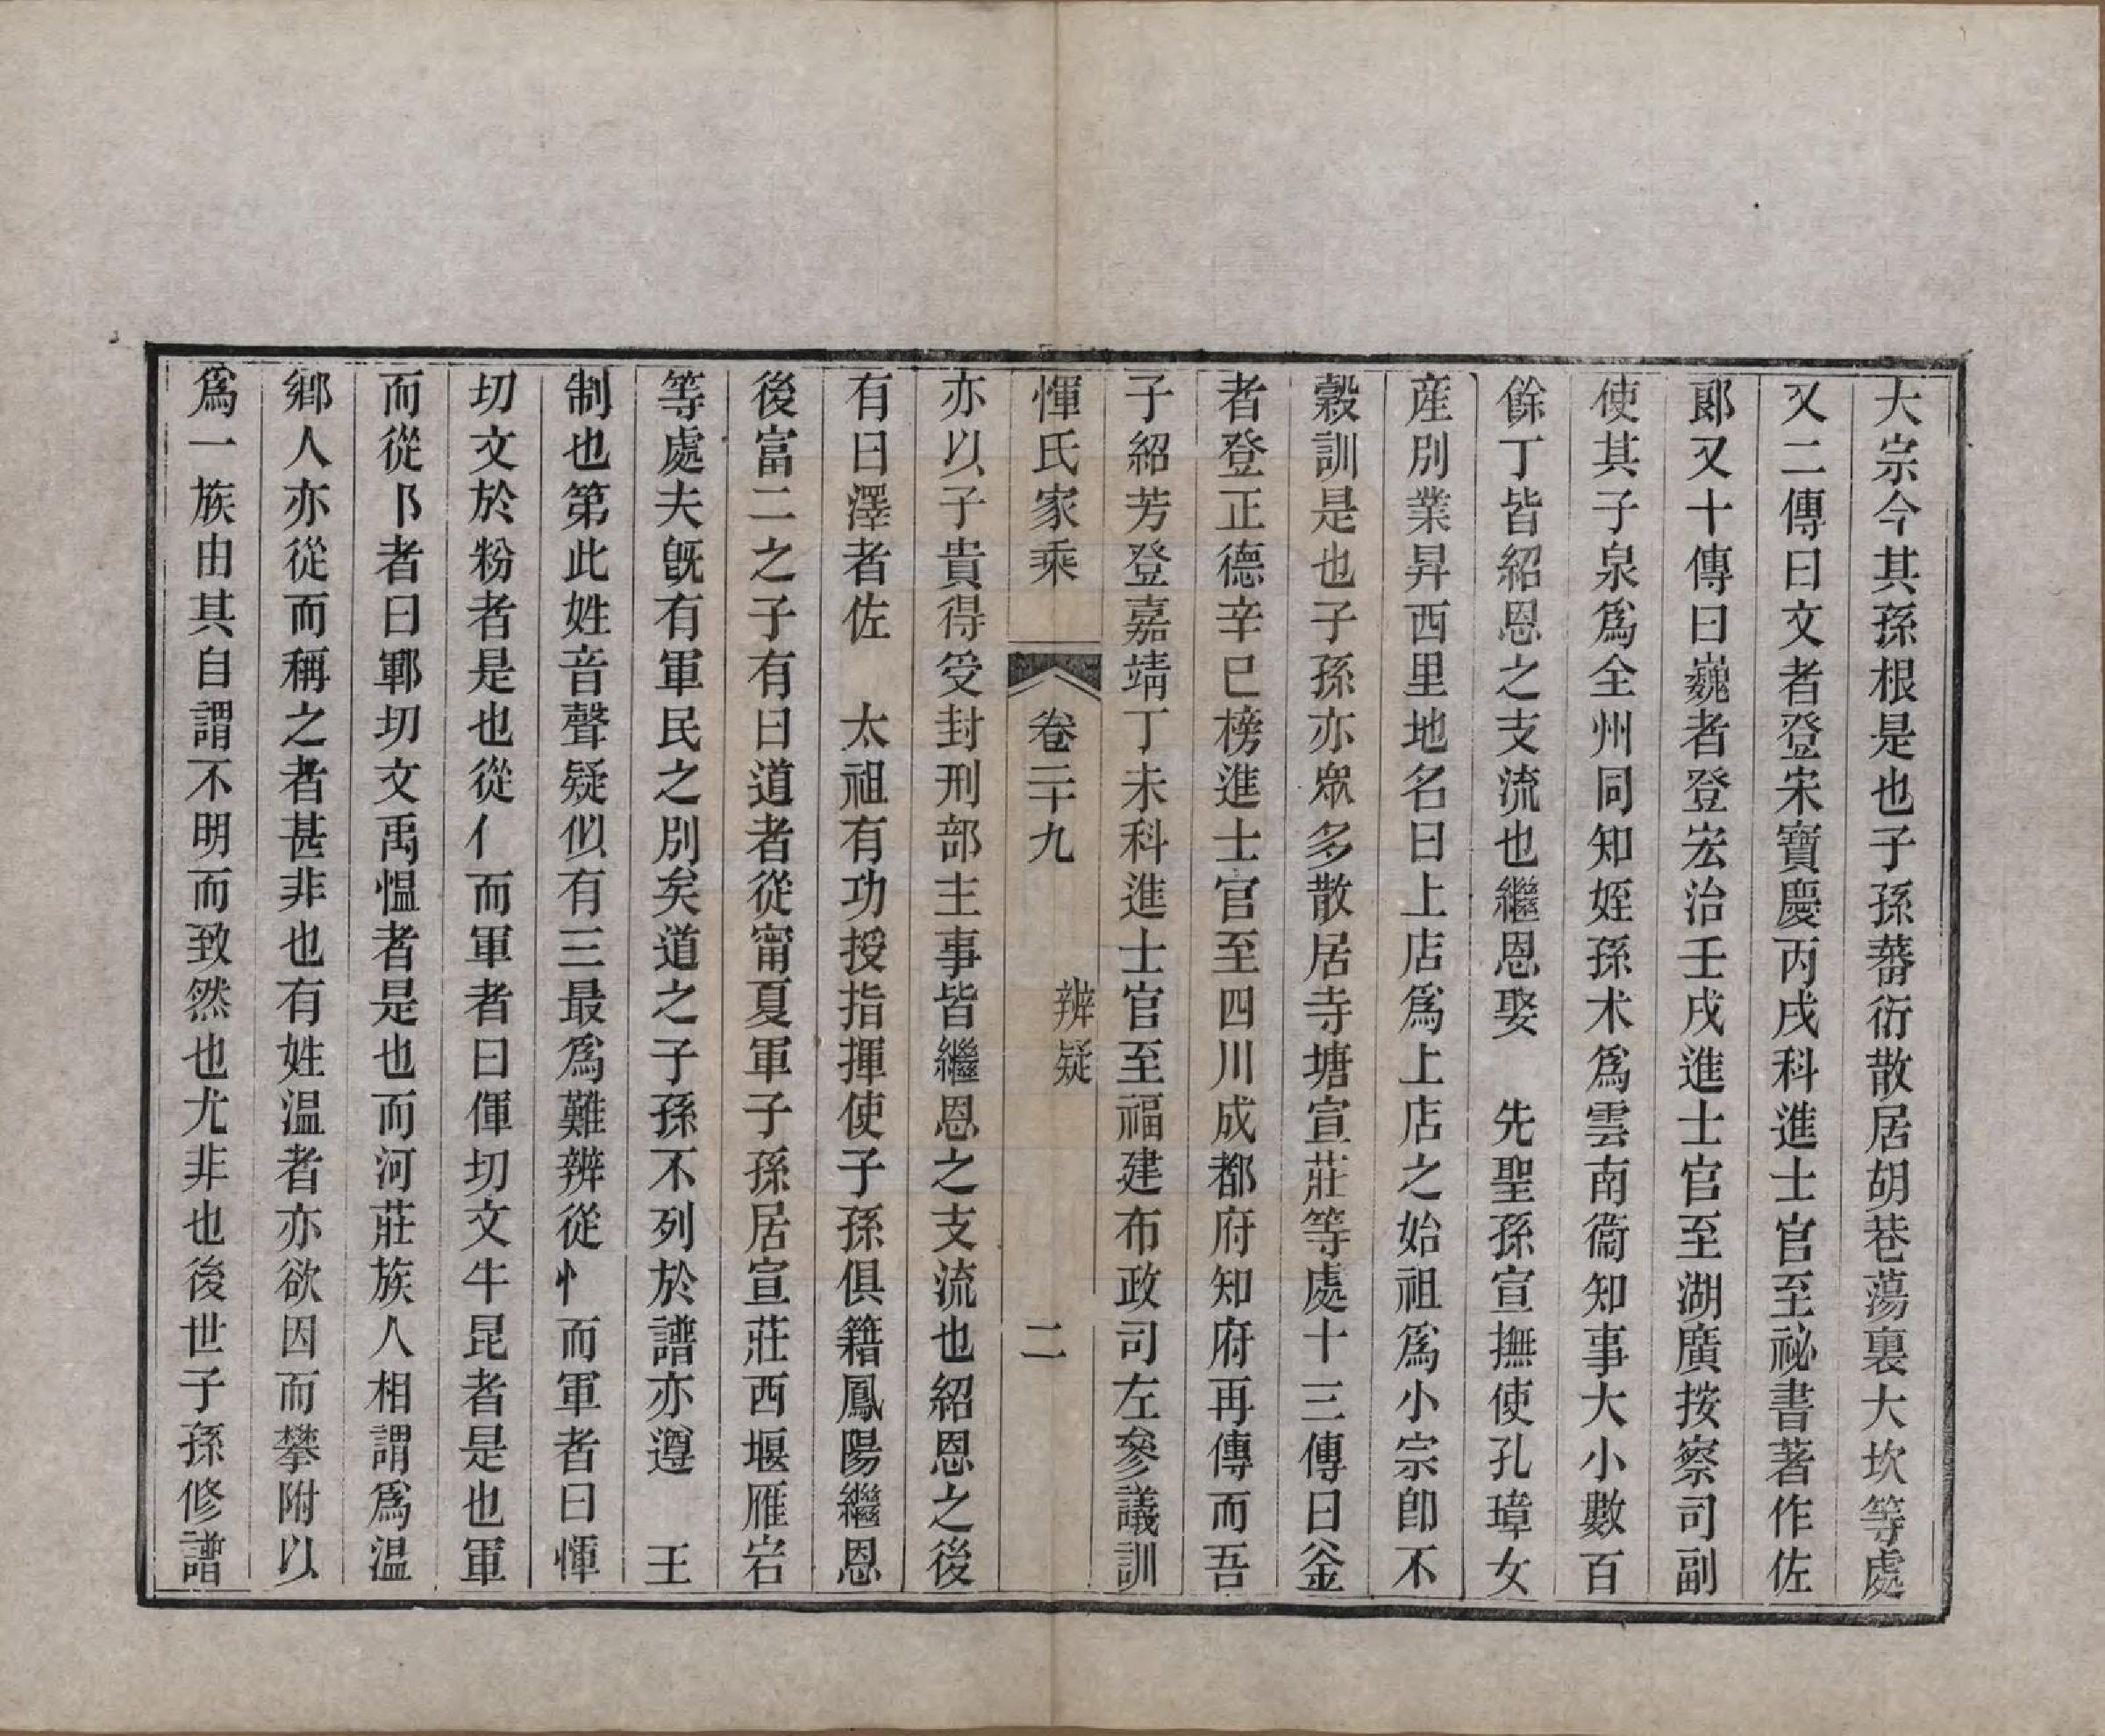 大宗今其孫根是也子孫蕃衍散居胡巷蕩裏大坎等處
又二傳曰文者登宋寶慶丙戌科進士官至祕書著作佐
郞又十傳曰巍者登宏治壬戌進士官至湖廣按察司副
使其子泉爲全州同知姪孫术爲雲南衞知事大小數百
餘丁皆紹恩之支流也繼恩娶　先聖孫宣撫使孔璋女
産別業昇西里地名曰上店爲上店之始祖爲小宗卽不
穀訓是也子孫亦衆多散居寺塘宣莊等處十三傳曰釡
者登正德辛巳榜進士官至四川成都府知府再傳而吾
子紹芳登嘉靖丁未科進士官至福建布政司左參議訓
惲氏家乘　卷二十九　辨疑　二
亦以子貴得受封刑部主事皆繼恩之支流也紹恩之後
有曰澤者佐　太祖有功授指揮使子孫俱籍鳳陽繼恩
後富二之子有曰道者從甯夏軍子孫居宣莊西堰雁岩
等處夫旣有軍民之別矣道之子孫不列於譜亦遵　王
制也第此姓音聲疑似有三最爲難辨從忄而軍者曰惲
切文於粉者是也從亻而軍者曰僤切文牛昆者是也軍
而從阝者曰鄆切文禹愠者是也而河莊族人相謂爲温
鄉人亦從而稱之者甚非也有姓温者亦欲因而攀附以
爲一族由其自謂不明而致然也尤非也後世子孫修譜